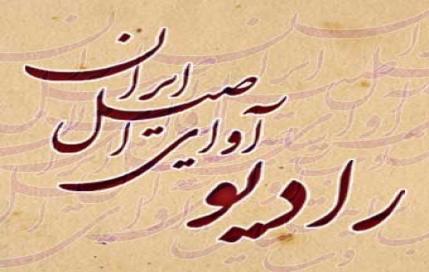 رادیو
آوای اصیل
ایران